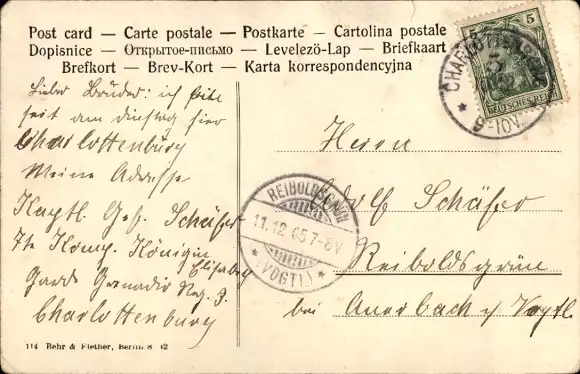 Post card — Carte postale — Postkarte — Cartolina postale
Dopisnice — Открытое-письмо — Levelező-Lap — Briefkaart
Brefkort — Brev-Kort — Karta korrespondencyjna
Lieber Brüder: ich bitte
seit am dinstag hier
Charlottenbürg
Meine Adresse
Kaptl. Gef. Schäfer
7te Komp. Königin
Elisabeth
Garde Grenadir Reg. 3.
Charlottenburg
114 Behr & Flether, Berlin S 42
5 5
DEUTSCHES REICH
CHARLOTTENBURG
6-10V.
Herrn
Adolf Schäfer
Reiboldsgrün
bei Auerbach i/ Vogtl.
REIBOLDSGRÜN
11.12 05 7-8V
(VOGTL)